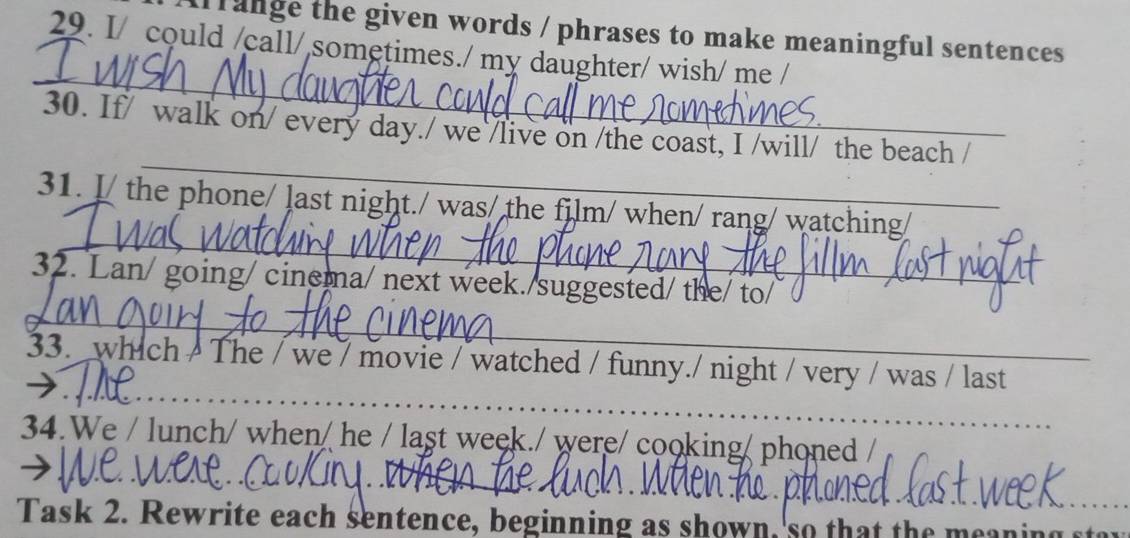 Arrange the given words / phrases to make meaningful sentences
29. I/ could /call/ sometimes./ my daughter/ wish/ me /
I wish My daughter could call me sometimes.
30. If/ walk on/ every day./ we /live on /the coast, I /will/ the beach /
31. I/ the phone/ last night./ was/ the film/ when/ rang/ watching/
I was watching when the phone rang the fillm last night
32. Lan/ going/ cinema/ next week./suggested/ the/ to/
Lan going to the cinema
33. which / The / we / movie / watched / funny./ night / very / was / last
→ The
34.We / lunch/ when/ he / last week./ were/ cooking/ phoned /
→ We were cooking when he luch when he phoned last week
Task 2. Rewrite each sentence, beginning as shown, so that the meaning